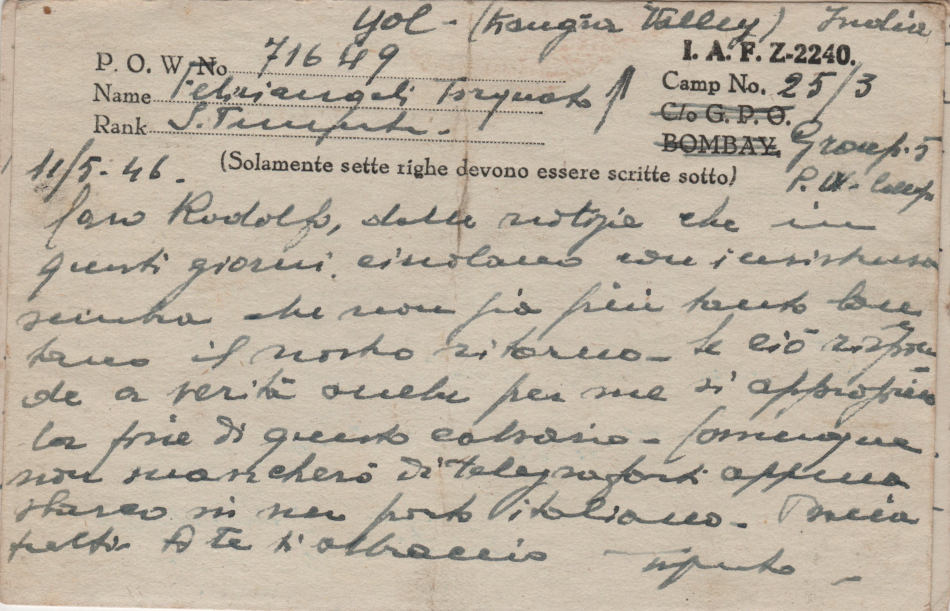 Yol - (Kangra Valley) India
I. A. F. Z-2240.
P. O. W. No 71649
Camp No. 25/3
Name Torquato
C/o G. P. O.
Rank S. Tenente
BOMBAY, Group. 5
11/5-46.
(Solamente sette righe devono essere scritte sotto)
P. W. Camp
Caro Rodolfo, dalle notizie che in
questi giorni circolano con insistenza
sembra che non sia più tanto lon
tano il nostro ritorno - Se ciò rispon
de a verità anche per me si appropin
la fine di questo calvario - Comunque
non mancherò di telegrafarti appena
sbarco in un porto italiano - Bacia
tutti. A te ti abbraccio